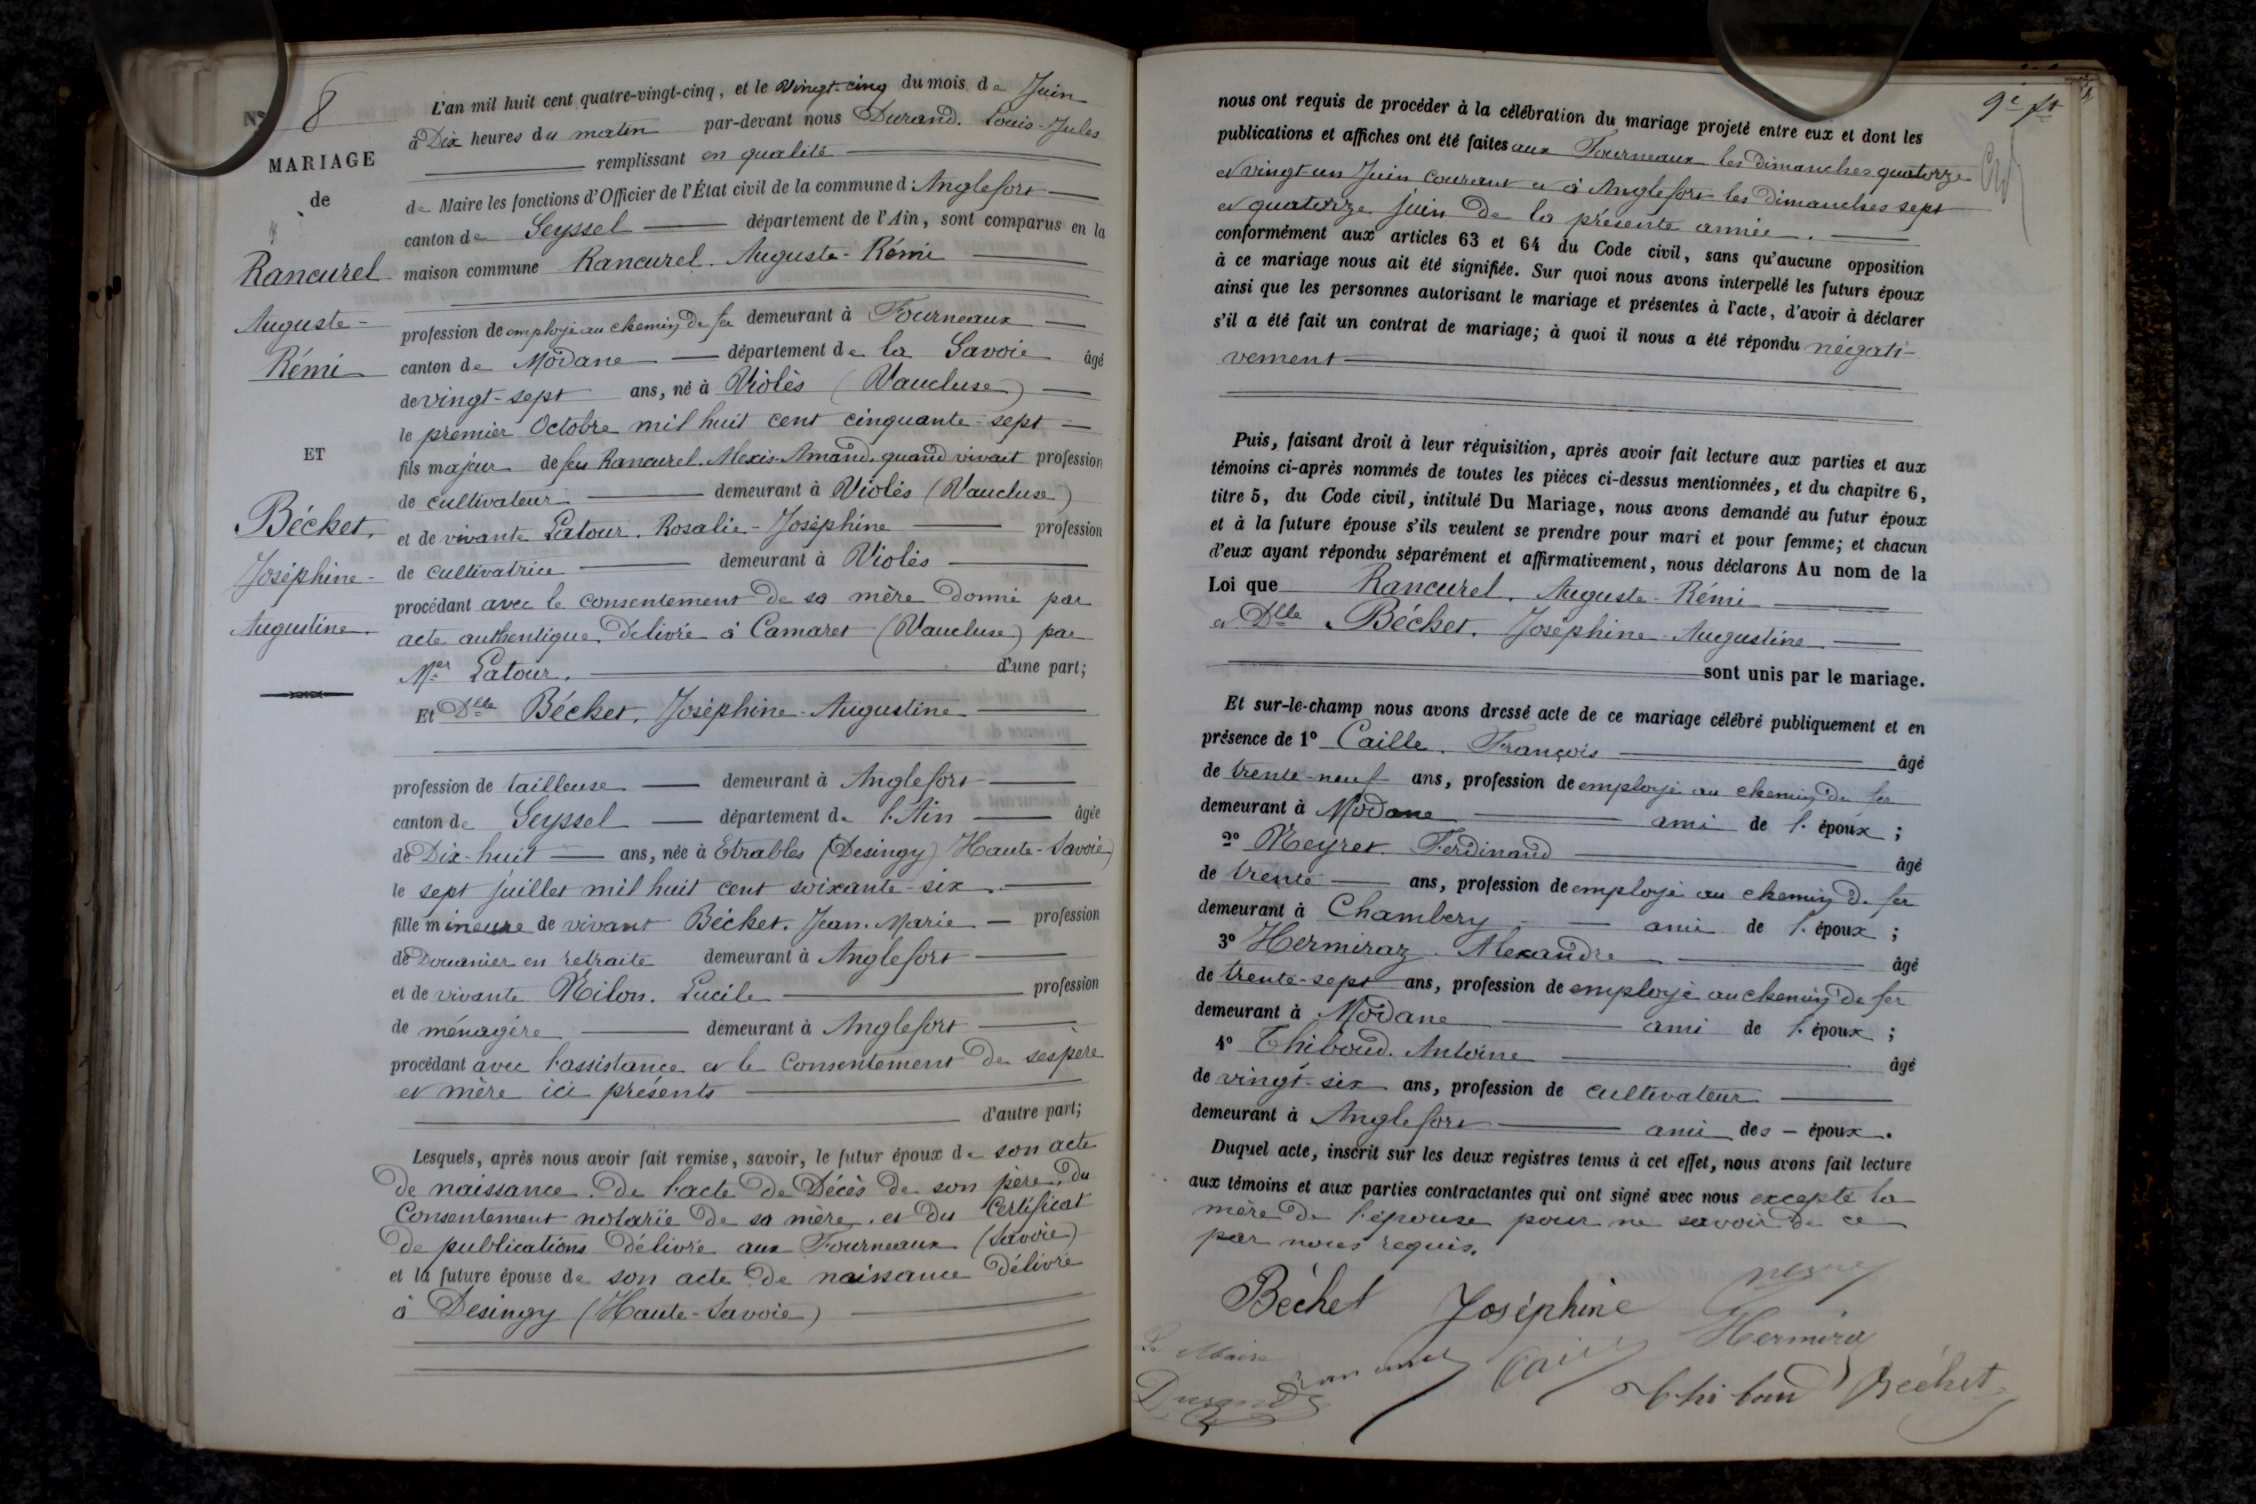 N° 8
MARIAGE
de
Rancurel
Auguste-
Rémi
ET
Béchet,
Joséphine-
Augustine.
L'an mil huit cent quatre-vingt-cinq, et le vingt-cinq du mois de Juin
à Dix heures du matin par-devant nous Durand. Louis-Jules
remplissant en qualité
de Maire les fonctions d'Officier de l'État civil de la commune d'Anglefort
canton de Seyssel département de l'Ain, sont comparus en la
maison commune Rancurel. Auguste-Rémi
profession de employé au chemin de fer demeurant à Fourneaux
canton de Modane département de la Savoie âgé
de vingt-sept ans, né à Violès (Vaucluse)
le premier Octobre mil huit cent cinquante-sept
fils majeur de feu Rancurel. Alexis-Amand. quand vivait profession
de cultivateur demeurant à Violès (Vaucluse)
et de vivante Latour. Rosalie-Joséphine profession
de cultivatrice demeurant à Violès
procédant avec le consentement de sa mère donné par
acte authentique délivré à Camaret (Vaucluse) par
Mer Latour. d'une part;
Et Dlle Béchet, Joséphine-Augustine
profession de tailleuse demeurant à Anglefort
canton de Seyssel département de l'Ain âgée
de Dix-huit ans, née à Etrables (Desingy) Haute-Savoie)
le sept juillet mil huit cent soixante-six
fille mineure de vivant Béchet. Jean-Marie profession
de Douanier en retraite demeurant à Anglefort
et de vivante Milon. Lucile profession
de ménagère demeurant à Anglefort
procédant avec l'assistance et le consentement de ses père
et mère ici présents
d'autre part;
Lesquels, après nous avoir fait remise, savoir, le futur époux de son acte
de naissance. de l'acte de Décès de son père, du
Consentement notarié de sa mère. et du Certificat
de publications délivré aux Fourneaux (Savoie)
et la future épouse de son acte de naissance délivré
à Desingy (Haute-Savoie)
9e ft
nous ont requis de procéder à la célébration du mariage projeté entre eux et dont les
publications et affiches ont été faites aux Fourneaux les dimanches quatorze
et vingt-un Juin courant et à Anglefort les dimanches sept
et quatorze juin de la présente année.
conformément aux articles 63 et 64 du Code civil, sans qu'aucune opposition
à ce mariage nous ait été signifiée. Sur quoi nous avons interpellé les futurs époux
ainsi que les personnes autorisant le mariage et présentes à l'acte, d'avoir à déclarer
s'il a été fait un contrat de mariage; à quoi il nous a été répondu négati-
vement
Puis, faisant droit à leur réquisition, après avoir fait lecture aux parties et aux
témoins ci-après nommés de toutes les pièces ci-dessus mentionnées, et du chapitre 6,
titre 5, du Code civil, intitulé Du Mariage, nous avons demandé au futur époux
et à la future épouse s'ils veulent se prendre pour mari et pour femme; et chacun
d'eux ayant répondu séparément et affirmativement, nous déclarons Au nom de la
Loi que Rancurel. Auguste-Rémi
et Dlle Béchet. Joséphine-Augustine
sont unis par le mariage.
Et sur-le-champ nous avons dressé acte de ce mariage célébré publiquement et en
présence de 1° Caille. François âgé
de trente-neuf ans, profession de employé au chemin de fer
demeurant à Modane ami de l'époux;
2° Meyret. Ferdinand âgé
de trente ans, profession de employé au chemin de fer
demeurant à Chambéry ami de l'époux;
3° Hermiraz. Alexandre âgé
de trente-sept ans, profession de employé au chemin de fer
demeurant à Modane ami de l'époux;
4° Thiboud. Antoine âgé
de vingt-six ans, profession de cultivateur
demeurant à Anglefort ami des époux.
Duquel acte, inscrit sur les deux registres tenus à cet effet, nous avons fait lecture
aux témoins et aux parties contractantes qui ont signé avec nous excepté la
mère de l'épouse pour ne savoir de ce
par nous requis.
Béchet Joséphine
Le Maire
Durand
Thiboud Béchet